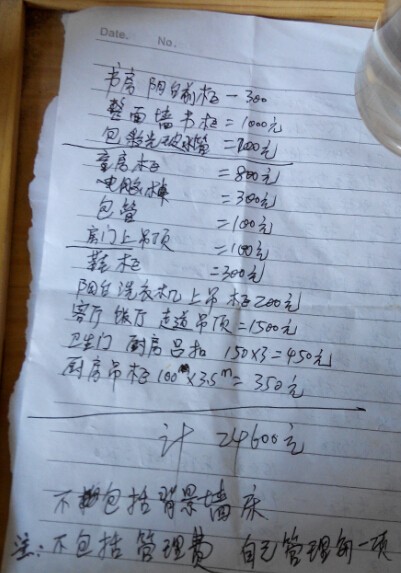 Date. No.
书房 阳台前柜 - 300
整面墙书柜 = 1000元
包 水管 = 200元
房柜 = 800元
电脑 = 300元
包管 = 100元
房门上吊顶 = 100元
鞋柜 = 300元
阳台洗衣机上吊柜200元
客厅 饭厅 走道吊顶 = 1500元
卫生门 厨房吕扣 150×3 = 450元
厨房吊柜100×3.5m = 350元
计 24600元
不包括背景墙 床
注: 不包括管理费 自己管理 一项